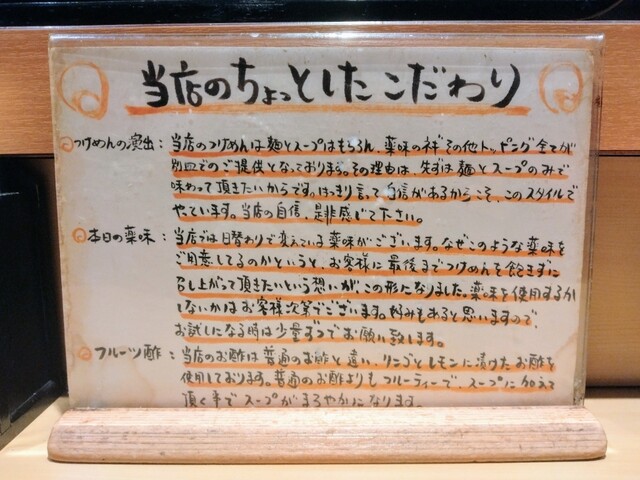 当店のちょっとしたこだわり
つけめんの演出： 当店のつけめんは麺とスープはもちろん、薬味のネギ その他トッピング全てが
別皿でのご提供となっております。その理由は、先ずは麺とスープのみで
味わって頂きたいからです。はっきり言って自信があるからこそ、このスタイルで
やっています。当店の自信、是非感じて下さい。
本日の薬味： 当店では日替わりで変えている薬味がございます。なぜこのような薬味を
ご用意してるのかというと、お客様に最後までつけめんを飽きずに
召し上がって頂きたいという想いが、この形になりました。薬味を使用するか
しないかはお客様次第でございます。好みもあると思いますので、
お試しになる時は少量ずつでお願い致します。
フルーツ酢： 当店のお酢は普通のお酢と違い、リンゴとレモンに漬けたお酢を
使用しております。普通のお酢よりもフルーティーで、スープに加えて
頂く事でスープがまろやかになります。